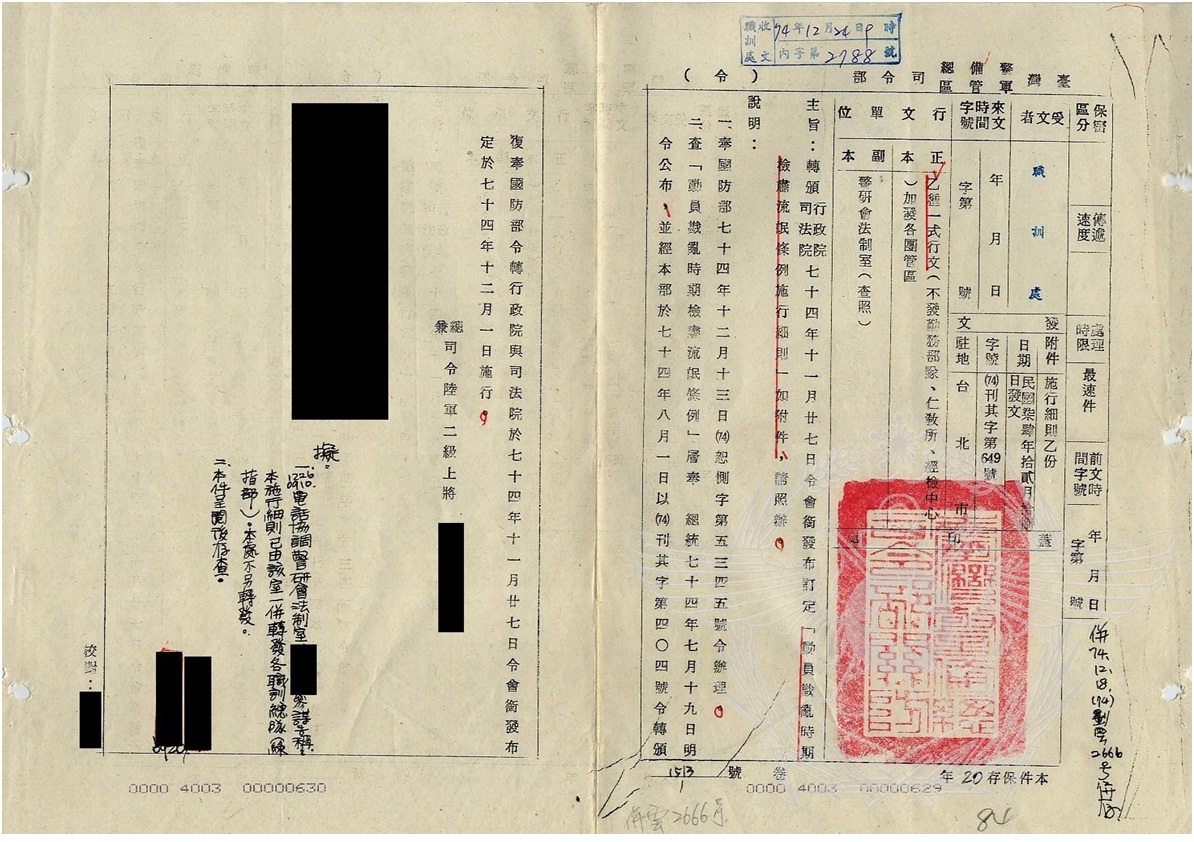 收文 職訓處 74年12月24日9時
內字第2788號
臺灣警備總司令部(令)
軍管區
保密區分
傳遞速度
處理時限
最速件
前文時間字號
年 月 日
字第 號
受文者
職訓處
來文時間字號
年 月 日
字第 號
發文
附件
施行細則乙份
日期
民國柒肆年拾貳月
日發文
字號
(74)刊其字第649號
駐地
台北市
蓋印
行文單位
正本
乙種一式行文(不發勤務部隊、仁教所、經檢中心
)加發各團管區
副本
警研會法制室(查照)
主旨:轉頒行政院司法院七十四年十一月廿七日令會銜發布訂定「動員戡亂時期
檢肅流氓條例施行細則」如附件,請照辦。
說明:
一、奉國防部七十四年十二月十三日(74)恕側字第五三四五號令辦理。
二、查「動員戡亂時期檢肅流氓條例」層奉 總統七十四年七月十九日明
令公布,並經本部於七十四年八月一日以(74)刊其字第四〇四號令轉頒
本件保存20年
卷
號
1513
0000 4003 00000629
併74.12.18.(74)
2666
併雲2666号
84
復奉國防部令轉行政院與司法院於七十四年十一月廿七日令會銜發布
定於七十四年十二月一日施行。
兼總司令陸軍二級上將
擬:
一、電話協調警研會法制室
本施行細則已由該室一併轉發各職訓總隊(練
指部)。本處不另轉發。
二、本件呈閱後存查。
校對:
0000 4003 00000630